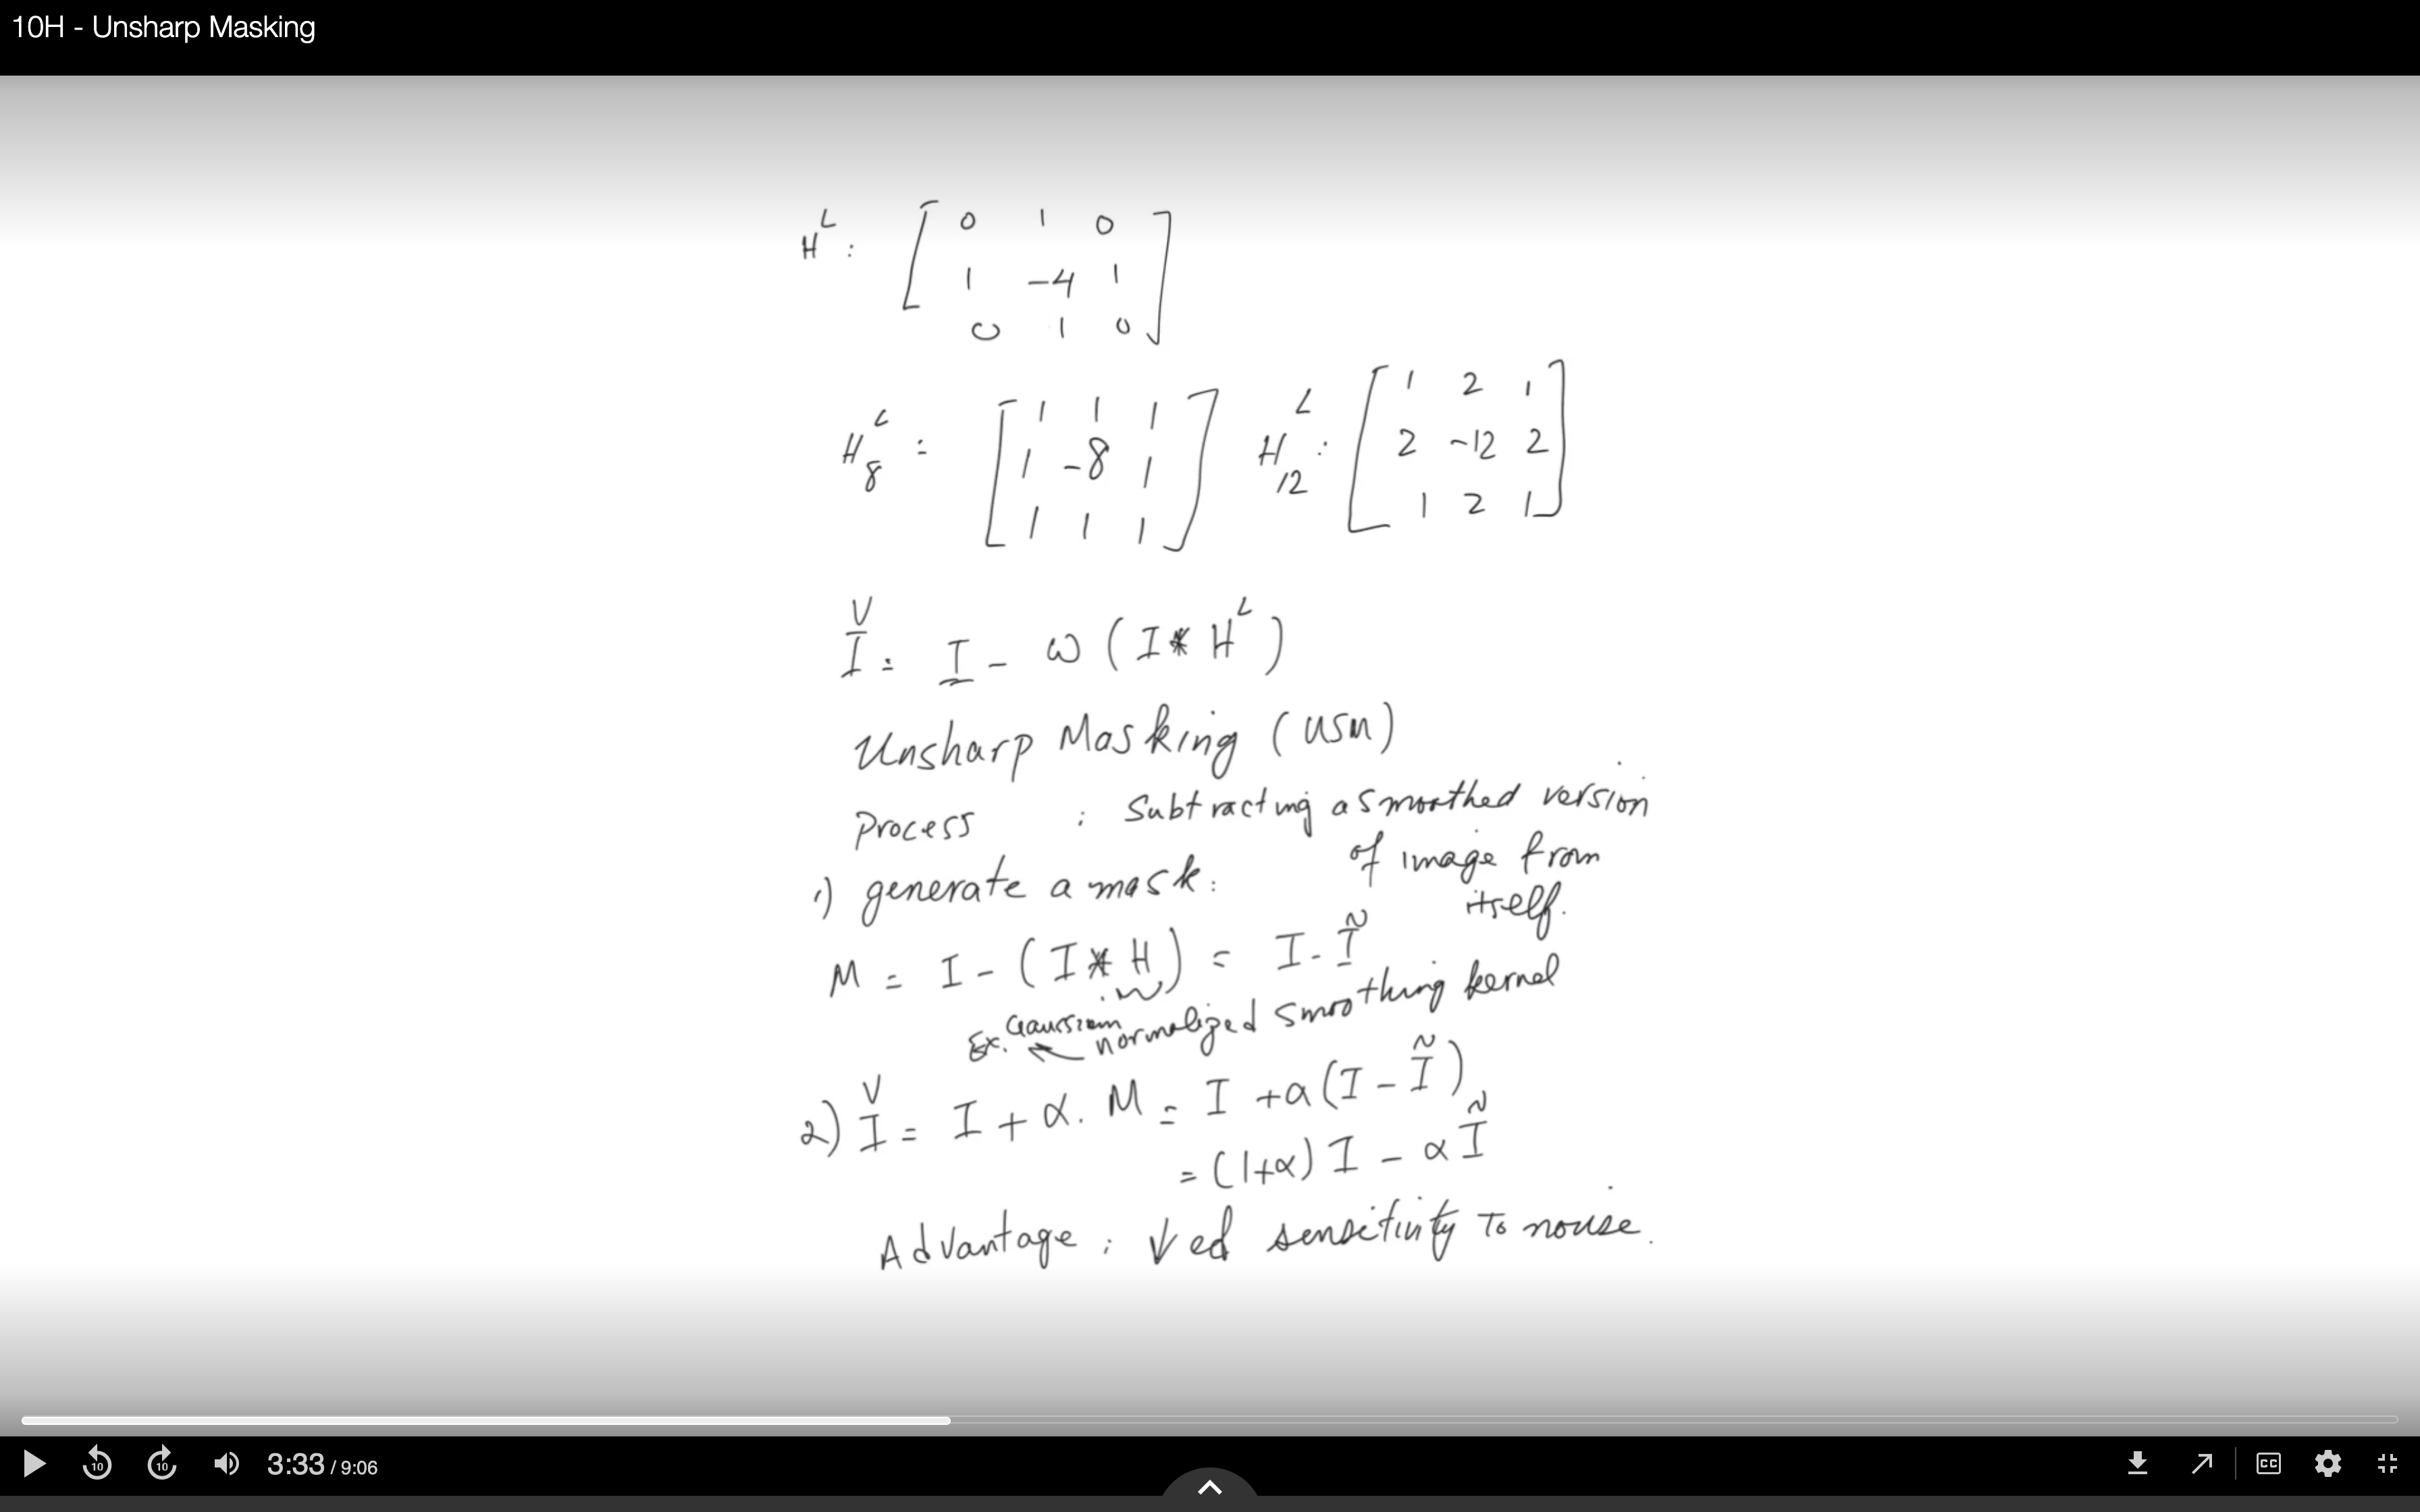 10H - Unsharp Masking
H^L : [ 0 1 0
1 -4 1
0 1 0 ]
H_8^L = [ 1 1 1
1 -8 1
1 1 1 ]
H_12^L : [ 1 2 1
2 -12 2
1 2 1 ]
Ǐ = I - ω ( I * H^L )
Unsharp Masking (USM)
Process : Subtracting a smoothed version
of image from
itself.
1) generate a mask :
M = I - ( I * H ) = I - Ĩ
Ex. Gaussian ← normalized smoothing kernel
2) Ǐ = I + α . M = I + a ( I - Ĩ )
= (1+α) I - α Ĩ
Advantage : ↓ed sensitivity to noise.
3:33 / 9:06
10
10
CC